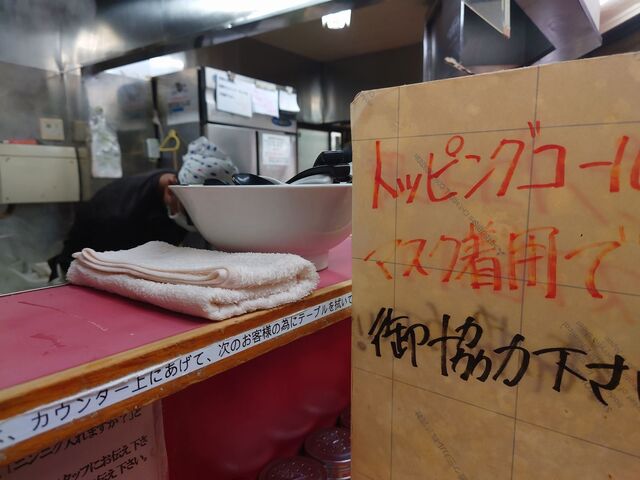 トッピングコール
マスク着用で
御協力下さ
、カウンター上にあげて、次のお客様の為にテーブルを拭いて
「ニンニク入れますか?」と
タッフにお伝え下さ
お伝え下さい。